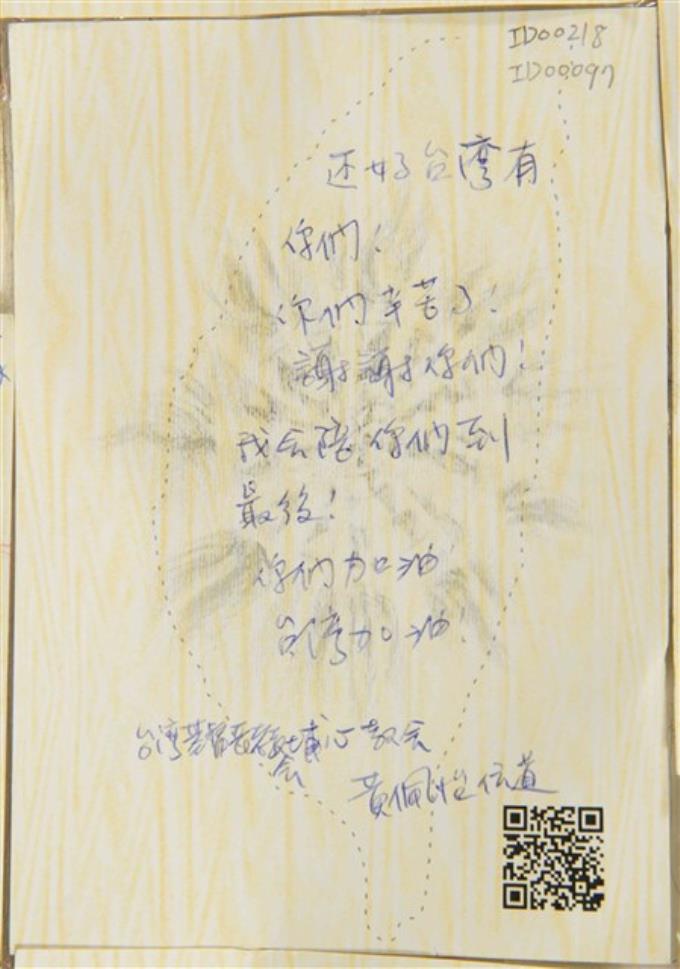 ID00218
ID00097
还好台湾有
你們!
你們辛苦了!
謝謝你們!
我会陪你們到
最後!
你們加油
台湾加油!
台湾基督長老教会埔心教会
黃佩 伝道